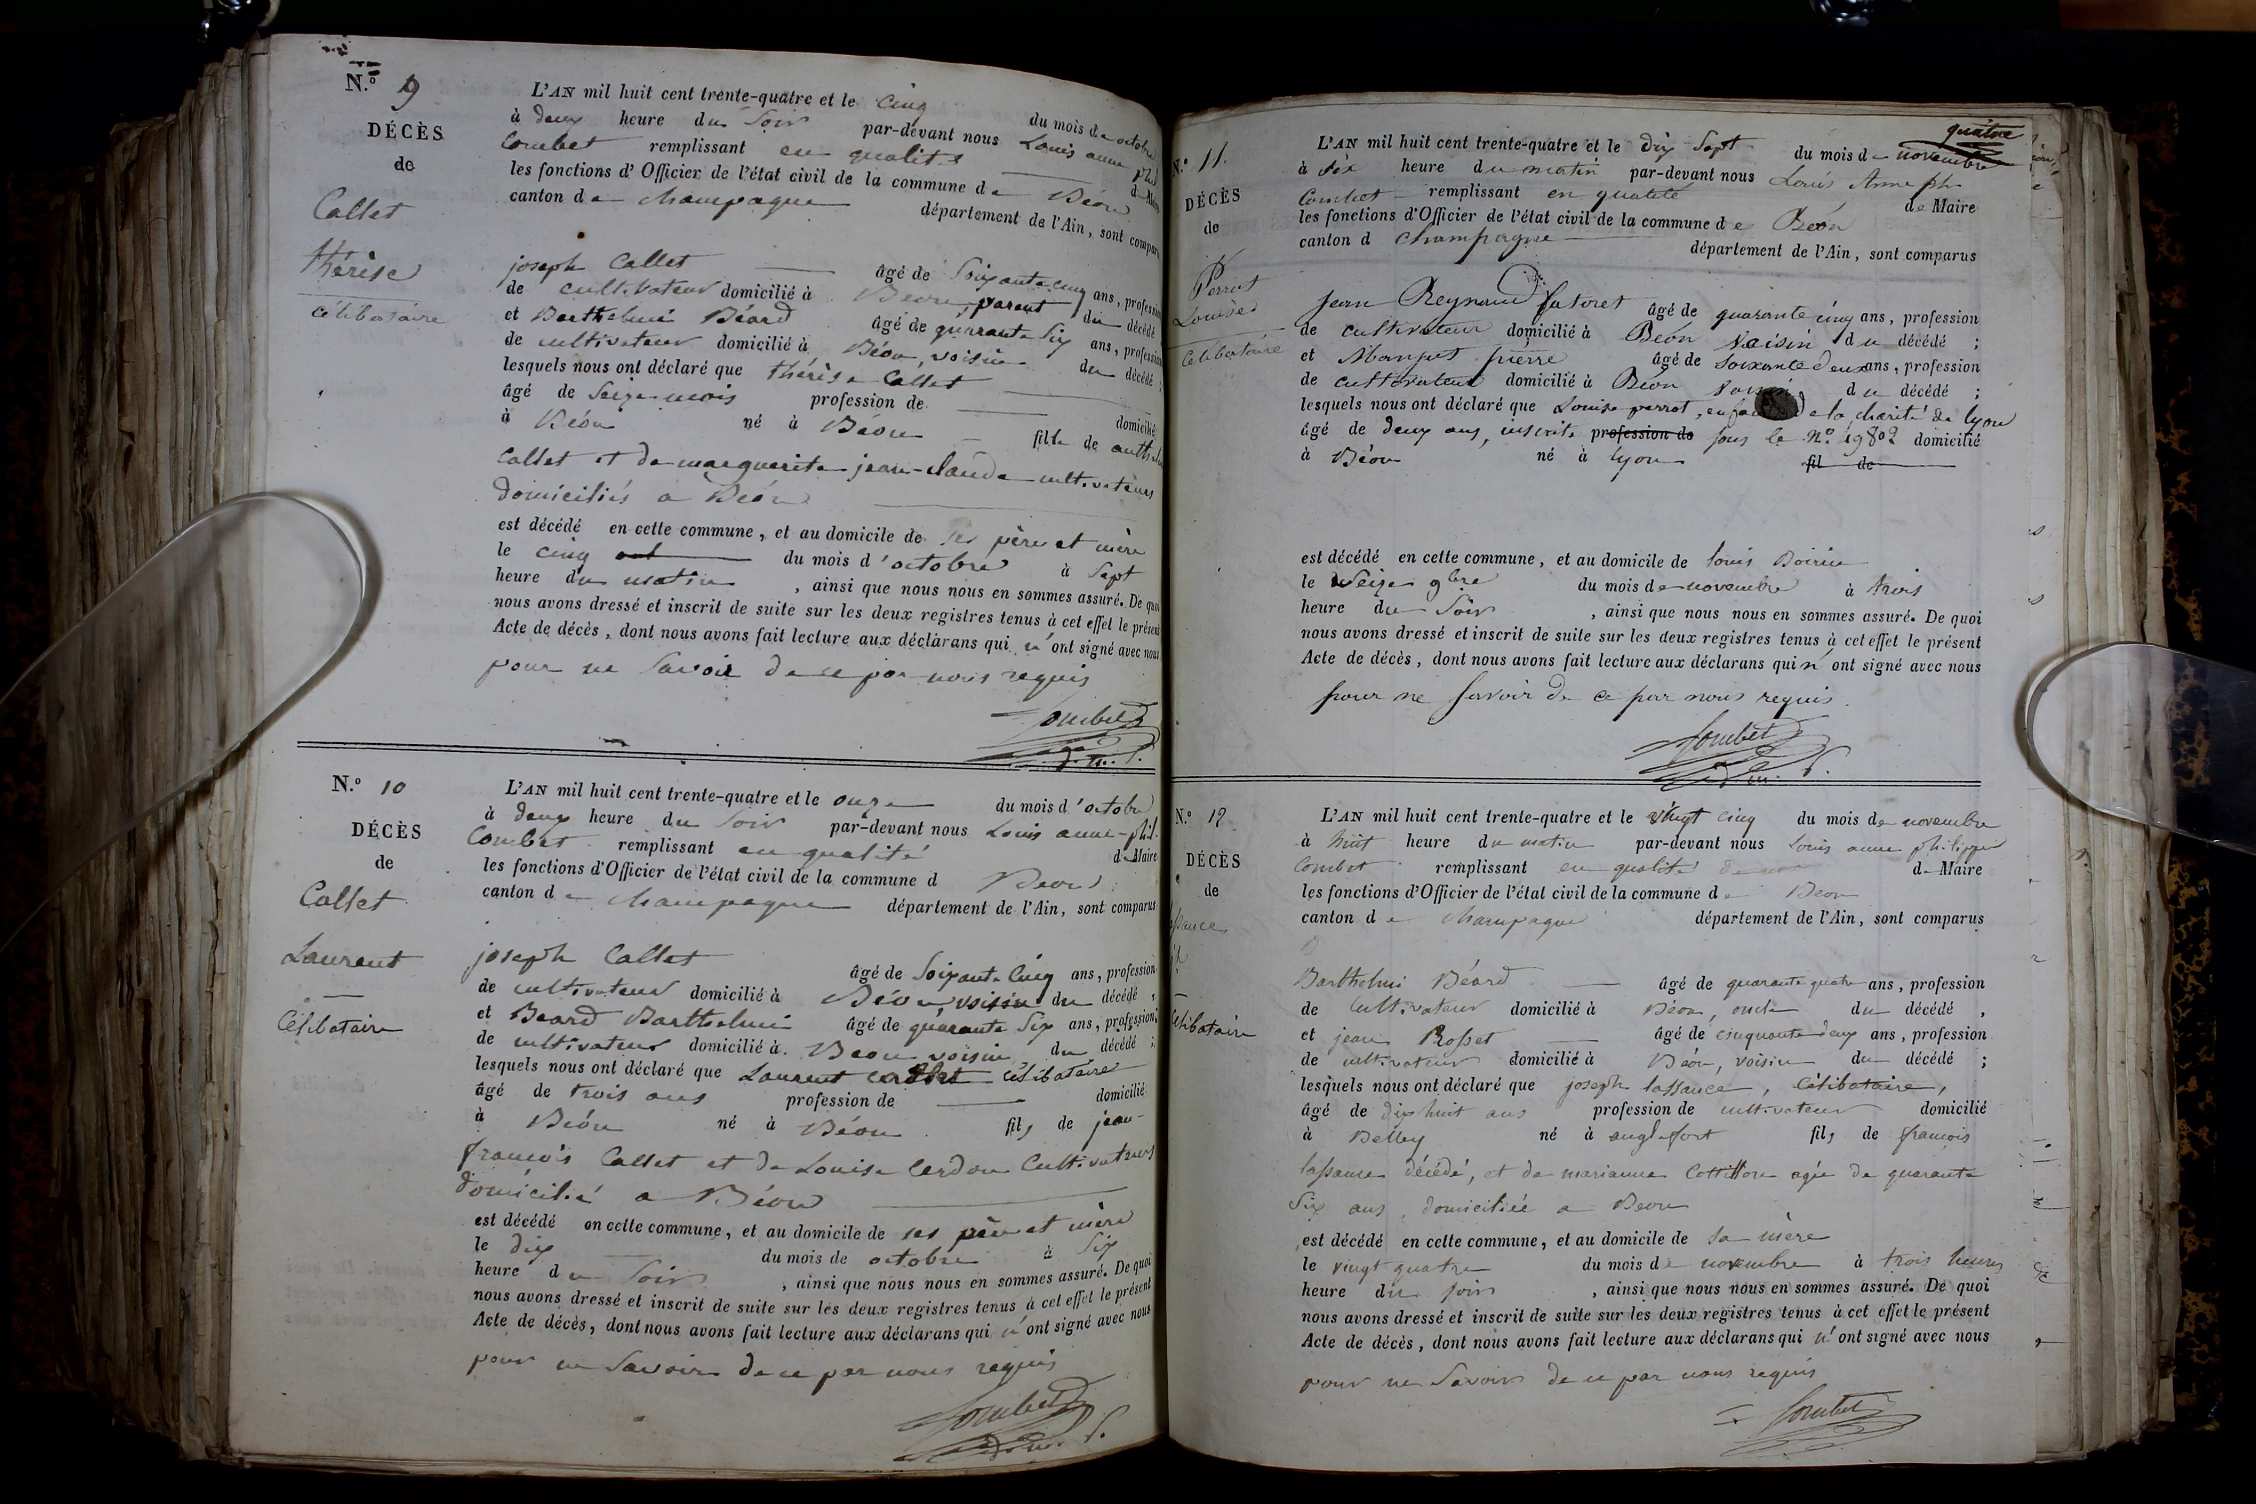 N.º 9
DÉCÈS
de
Callet
thérèse
célibataire
L'AN mil huit cent trente-quatre et le cinq du mois de octobre
à deux heure du soir par-devant nous Louis anne phil
Combet remplissant en qualité de Maire
les fonctions d'Officier de l'état civil de la commune de Béon
canton de Champagne département de l'Ain, sont comparus
joseph Callet âgé de Soixante cinq ans, profession
de cultivateur domicilié à Béon, parent du décédé
et Barthelmi Béard âgé de quarante Six ans, profession
de cultivateur domicilié à Béon, voisin du décédé ;
lesquels nous ont déclaré que thérèse Callet
âgé de Seize mois profession de domicilié
à Béon né à Béon fille de anthel
Callet et de marguerite jean-claude cultivateurs
domiciliés a Béon
est décédé en cette commune, et au domicile de ses père et mère
le cinq du mois d'octobre à Sept
heure du matin, ainsi que nous nous en sommes assuré. De quoi
nous avons dressé et inscrit de suite sur les deux registres tenus à cet effet le présent
Acte de décès, dont nous avons fait lecture aux déclarans qui n'ont signé avec nous
pour ne Savoir de ce par nous requis
Combet
N.º 10
DÉCÈS
de
Callet
Laurent
Célibataire
L'AN mil huit cent trente-quatre et le onze du mois d'octobre
à deux heure du Soir par-devant nous Louis anne-phil.
Combet remplissant en qualité de Maire
les fonctions d'Officier de l'état civil de la commune d Béon
canton de Champagne département de l'Ain, sont comparus
joseph Callet âgé de Soixante Cinq ans, profession
de cultivateur domicilié à Béon voisin du décédé,
et Beard Barthelmi âgé de quarante Six ans, profession
de cultivateur domicilié à Béon voisin du décédé ;
lesquels nous ont déclaré que Laurent célibataire
âgé de trois ans profession de domicilié
à Béon né à Béon fils de jean-
françois Callet et de Louise Cerdon Cultivateurs
domicilié a Béon
est décédé en cette commune, et au domicile de ses père et mère
le dix du mois de octobre à Six
heure du Soir, ainsi que nous nous en sommes assuré. De quoi
nous avons dressé et inscrit de suite sur les deux registres tenus à cet effet le présent
Acte de décès, dont nous avons fait lecture aux déclarans qui n'ont signé avec nous
pour ne Savoir de ce par nous requis
Combet
N.º 11.
DÉCÈS
de
Perrot
Louise
Célibataire
quatre
L'AN mil huit cent trente-quatre et le dix Sept du mois de novembre
à dix heure du matin par-devant nous Louis Anne ph
Combet remplissant en qualité de Maire
les fonctions d'Officier de l'état civil de la commune de Béon
canton d Champagne département de l'Ain, sont comparus
jean Reynaud âgé de quarante cinq ans, profession
de cultivateur domicilié à Béon voisin du décédé ;
et pierre âgé de soixante deux ans, profession
de cultivateur domicilié à Béon voisin du décédé ;
lesquels nous ont déclaré que Louise perrot, de la charité de lyon
âgé de deux ans, inscrite profession de sous le N.º 19802 domicilié
à Béon né à lyon fil de
est décédé en cette commune, et au domicile de louis
le Seize 9bre du mois de novembre à trois
heure du Soir, ainsi que nous nous en sommes assuré. De quoi
nous avons dressé et inscrit de suite sur les deux registres tenus à cet effet le présent
Acte de décès, dont nous avons fait lecture aux déclarans qui n'ont signé avec nous
pour ne Savoir de ce par nous requis
Combet
N.º 12
DÉCÈS
de
Célibataire
L'AN mil huit cent trente-quatre et le vingt cinq du mois de novembre
à huit heure du matin par-devant nous Louis anne philippe
Combet remplissant en qualité de Maire
les fonctions d'Officier de l'état civil de la commune de Béon
canton de Champagne département de l'Ain, sont comparus
Barthelmi Béard âgé de quarante quatre ans, profession
de Cultivateur domicilié à Béon, oncle du décédé,
et jean Rosset âgé de cinquante deux ans, profession
de cultivateur domicilié à Béon, voisin du décédé ;
lesquels nous ont déclaré que joseph lassance, célibataire,
âgé de dix huit ans profession de cultivateur domicilié
à Belley né à anglefort fils de françois
lassance décédé, et de marianne Cottillon agée de quarante
Six ans, domiciliée a Beon
est décédé en cette commune, et au domicile de sa mère
le vingt quatre du mois de novembre à trois heures
heure du soir, ainsi que nous nous en sommes assuré. De quoi
nous avons dressé et inscrit de suite sur les deux registres tenus à cet effet le présent
Acte de décès, dont nous avons fait lecture aux déclarans qui n'ont signé avec nous
pour ne Savoir de ce par nous requis
Combet